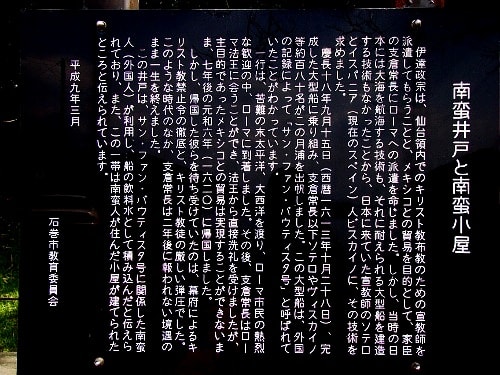 南蛮井戸と南蛮小屋
伊達政宗は、仙台領内でのキリスト教布教のための宣教師を
派遣してもらうことと、メキシコとの貿易を目的として、家臣
の支倉常長にローマへの派遣を命じました。しかし、当時の日
本には大海を航海する技術も、それに耐えられる大型船を建造
する技術もなかったことから、日本に来ていた宣教師のソテロ
とイスパニア(現在のスペイン)人ビスカイノに、その技術を
求めました。
慶長十八年九月十五日(西暦一六一三年十月二十八日)、完
成した大型船に乗り組み、支倉常長以下ソテロやヴィスカイノ
等約百八十名がこの月浦を出帆しました。この大型船は、外国
の記録によって「サン・ファン・バウティスタ号」と呼ばれて
いたことがわかっています。
一行は、苦難の末太平洋、大西洋を渡り、ローマ市民の熱烈
な歓迎の中、ローマに到着しました。その後、支倉常長はロー
マ法王に会うことができ、法王から直接洗礼を受けましたが、
主目的であったメキシコとの貿易は実現することができないま
ま、七年後の元和六年(一六二〇)に帰国しました。
しかし、帰国した彼らを待ち受けていたのは、幕府によるキ
リスト教禁止令の徹底と、キリスト教徒の厳しい弾圧でした。
このような時代のなか、支倉常長は二年後に報われない境遇の
まま一生を終えました。
この井戸は、サン・ファン・バウティスタ号に関係した南蛮
人(外国人)が利用し、船の飲料水として積み込んだと伝えら
れており、また、この一帯は南蛮人が住んだ小屋が建てられた
ところと伝えられています。
平成九年三月
石巻市教育委員会